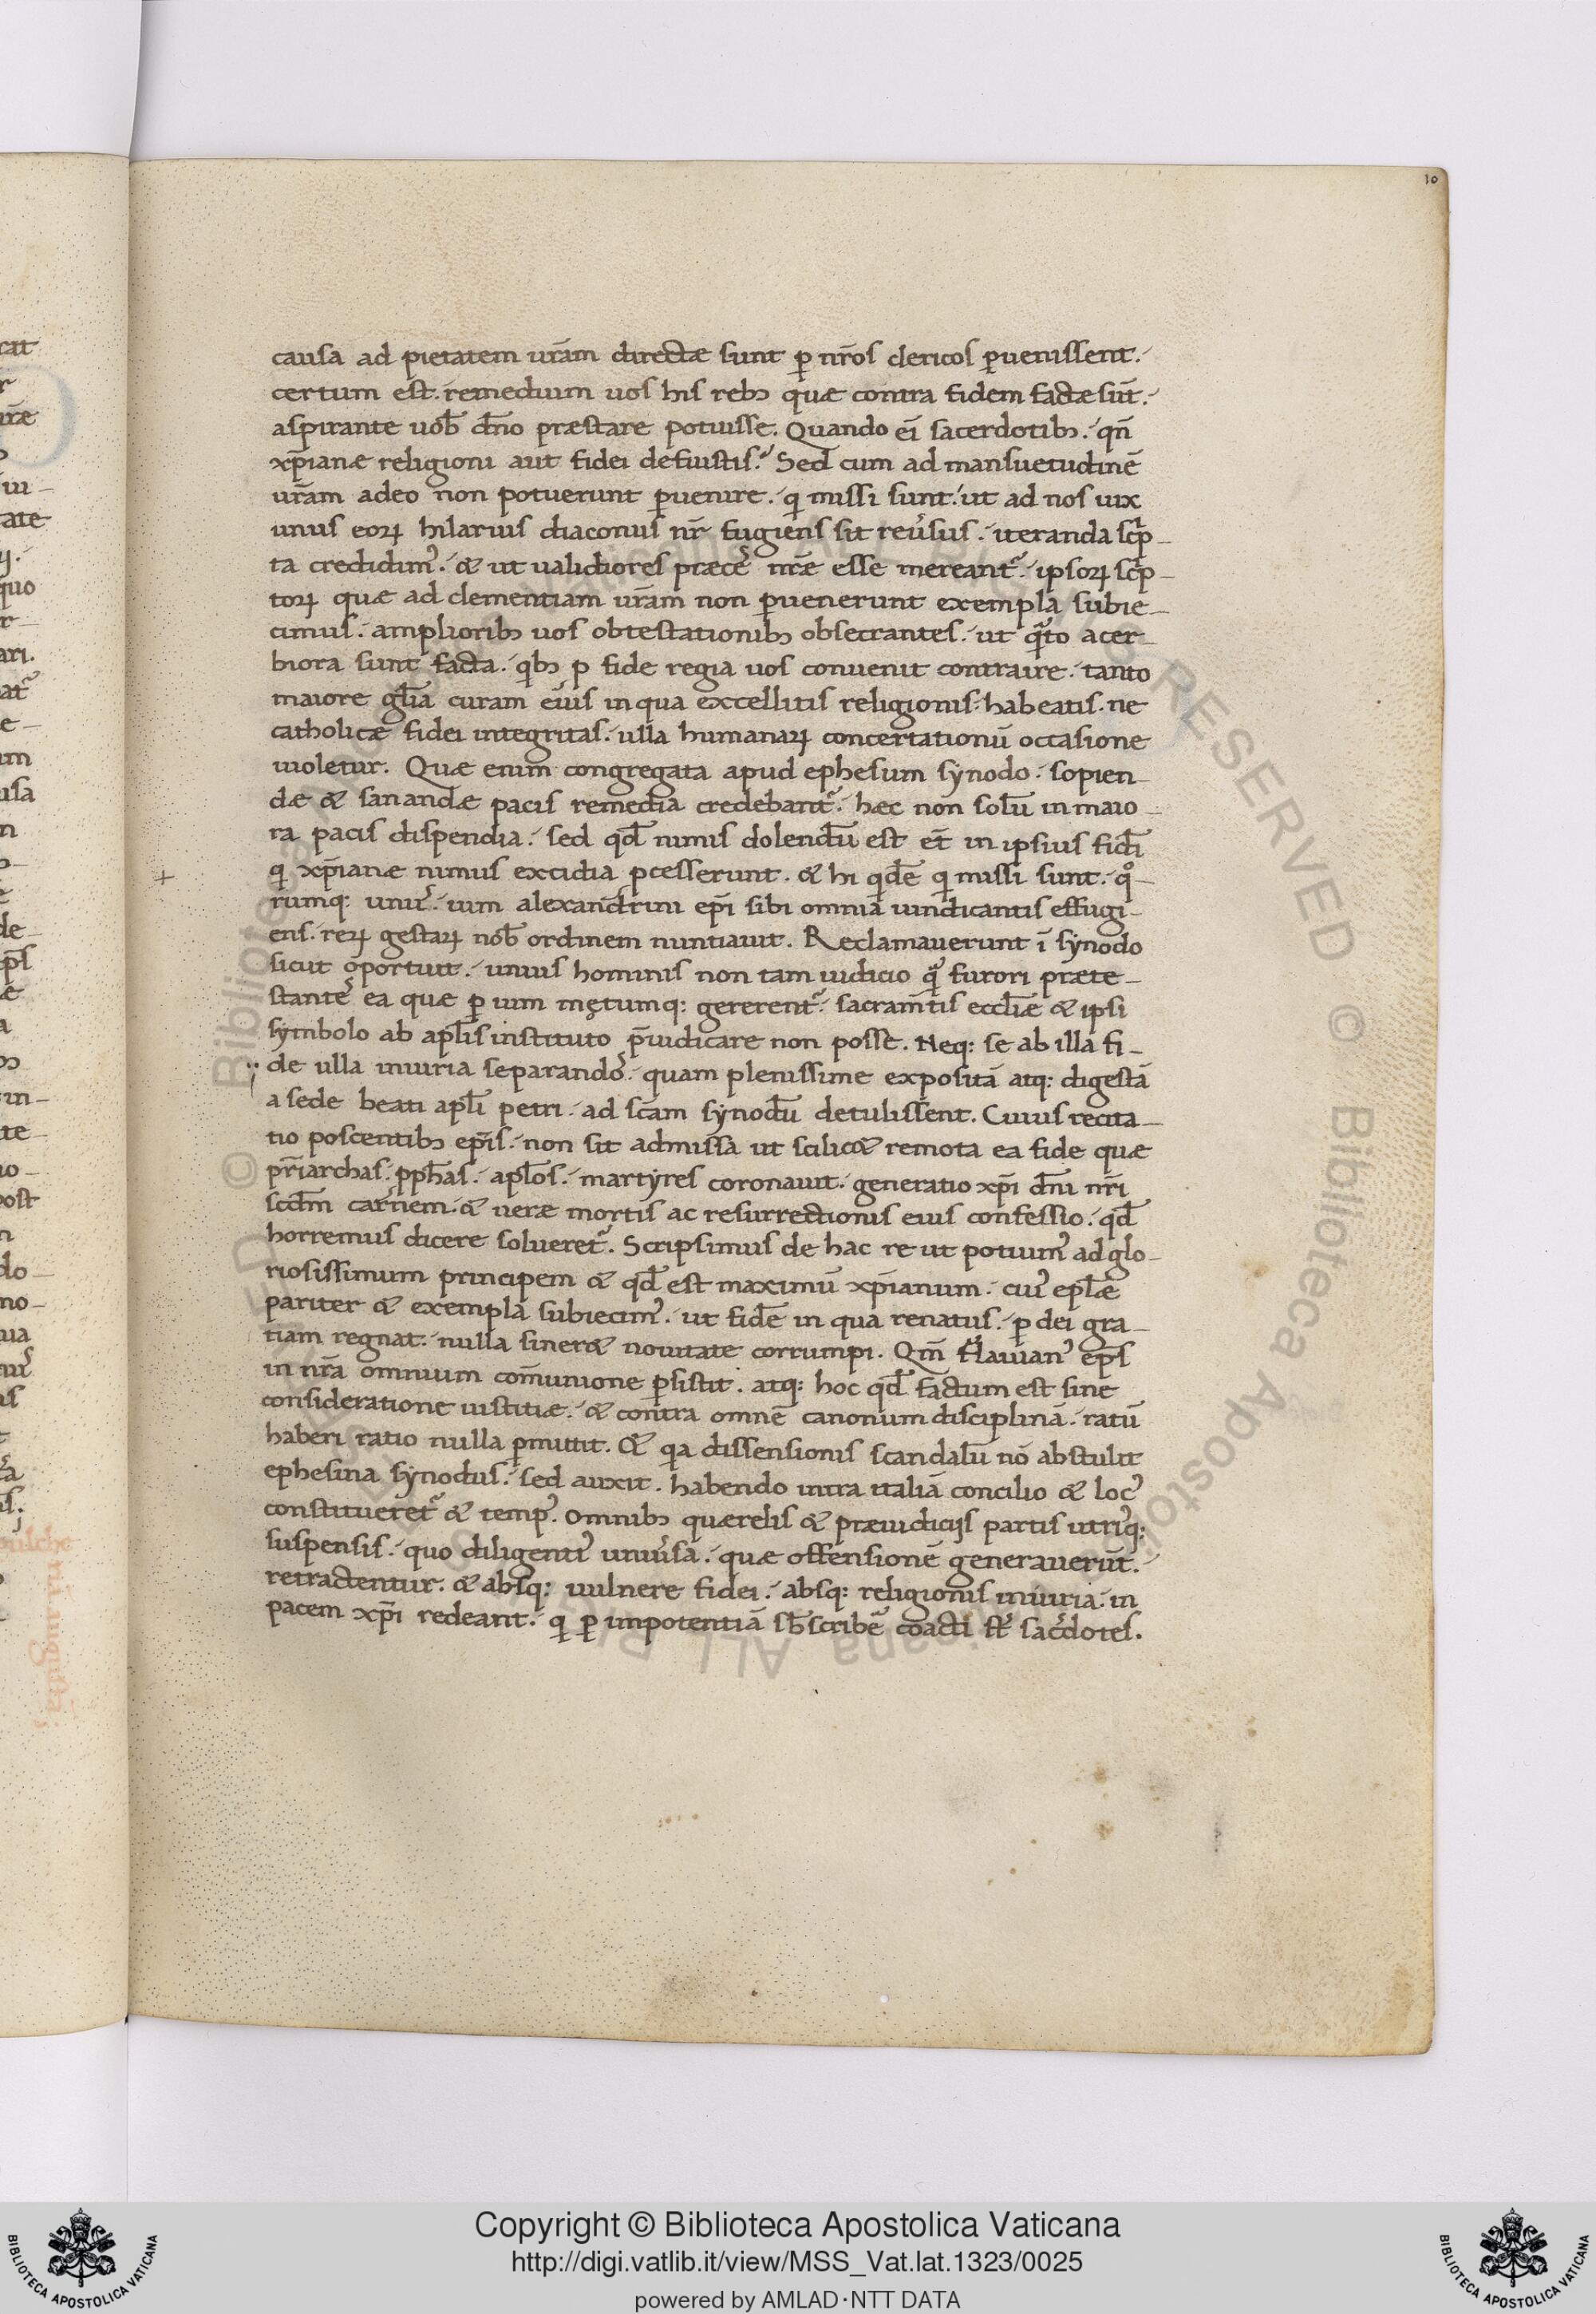 10
causa ad pietatem ur̄am directæ sunt ꝑ nr̄os clericos ꝑuenissent.
certum est. remedium uos his rebꝫ quæ contra fidem factæ sūt.
aspirante uob̄ dn̄o præstare potuisse. Quando ei sacerdotibꝫ. qn̄
xp̄ianæ religioni aut fidei defuistis? Sed cum ad mansuetudinē
ur̄am adeo non potuerunt ꝑuenire. qi missi sunt. ut ad nos uix
unus eoꝝ hilarius diaconus nr̄ fugiens sit reu̓sus. iteranda sc̄p-
ta credidim᾽. & ut ualidiores præce᾽ nr̄æ esse mereant᾽. ipsoꝝ sc̄p-
toꝝ quæ ad clementiam ur̄am non ꝑuenerunt exempla subie-
cimus. ampliioribꝫ uos obtestationibꝫ obsecrantes. ut qᷓto acer-
biora sunt facta. qibꝫ p fide regia uos conuenit contraire. tanto
maiore gl̄ia curam eius in qua excellitis religionis habeatis. ne
catholicæ fidei integritas. ulla humanaꝝ concertationū occasione
uioletur. Quæ enim congregata apud ephesum synodo. sopien-
dæ & sanandæ pacis remedia credebant᾽. hæc non solū in maio-
ra pacis dispendia. sed qd̄ nimis dolendū est et̄ in ipsius fidēi
qi xp̄ianæ nimus excidia ꝓcesserunt. & hi qidē qi missi sunt. qͦ-
rumq: unu᾽. uim alexandrini ep̄i sibi omnia uindicantis effugi-
ens. reꝝ gestaꝝ nob̄ ordinem nuntiauit. Reclamauerunt ī synodo
sicut oportuit. unius hominis non tam iudicio qᷓ furori præte-
stante᾽ ea quæ ꝑ uim mętumq: gererent᾽. sacram̄tis eccl̄iæ & ipsi
symbolo ab apl̄is instituto p̄iudicare non posse. Neq: se ab illa fi-
de ulla iniuria separando᾽. quam plenissime expositā atq: digestā
a sede beati apl̄i petri. ad sc̄am synodū detulissent. Cuius recita-
tio poscentibꝫ ep̄is. non sit admissa ut scilic& remota ea fide quæ
pr̄iarchas. pph̄as. apl̄os. martyres coronauit. generatio xp̄i dn̄i nr̄i
scdm̄ carnem. & ueræ mortis ac resurrectionis eius confessio. qd̄
horremus dicere solueret᾽. Scripsimus de hac re ut potuim᾽ ad glo-
riosissimum principem & qd̄ est maximū xp̄ianum. cui᾽ epl̄æ
pariter & exempla subiecim᾽. ut fidē in qua renatus. ꝑ dei gra-
tiam regnat. nulla siner& nouitate corrumpi. Qm̄ flauian᾽ ep̄s
in nr̄a omnium com̄unione ꝑsistit. atq: hoc qd̄ factum est sine
consideratione iustitiæ. & contra omnē canonum disciplinā. ratū
haberi ratio nulla ꝑmittit. & qia dissensionis scandalū nō abstulit
ephesina synodus. sed auxit. habendo intra italiā concilio & loc᾽
constitueret᾽ & temp᾽. omnibꝫ quærelis & præiudicijs partis utri᾽q:
suspensis. quo diligenti᾽ uniu̓sa. quæ offensionē generauerūt.
retractentur. & absq: uulnere fidei. absq: religionis iniuria. in
pacem xp̄i redeant. qi ꝑ impotentiā sb̄scribe᾽ coacti st̄ sac̓dotes.
Copyright © Biblioteca Apostolica Vaticana
http://digi.vatlib.it/view/MSS_Vat.lat.1323/0025
powered by AMLAD·NTT DATA